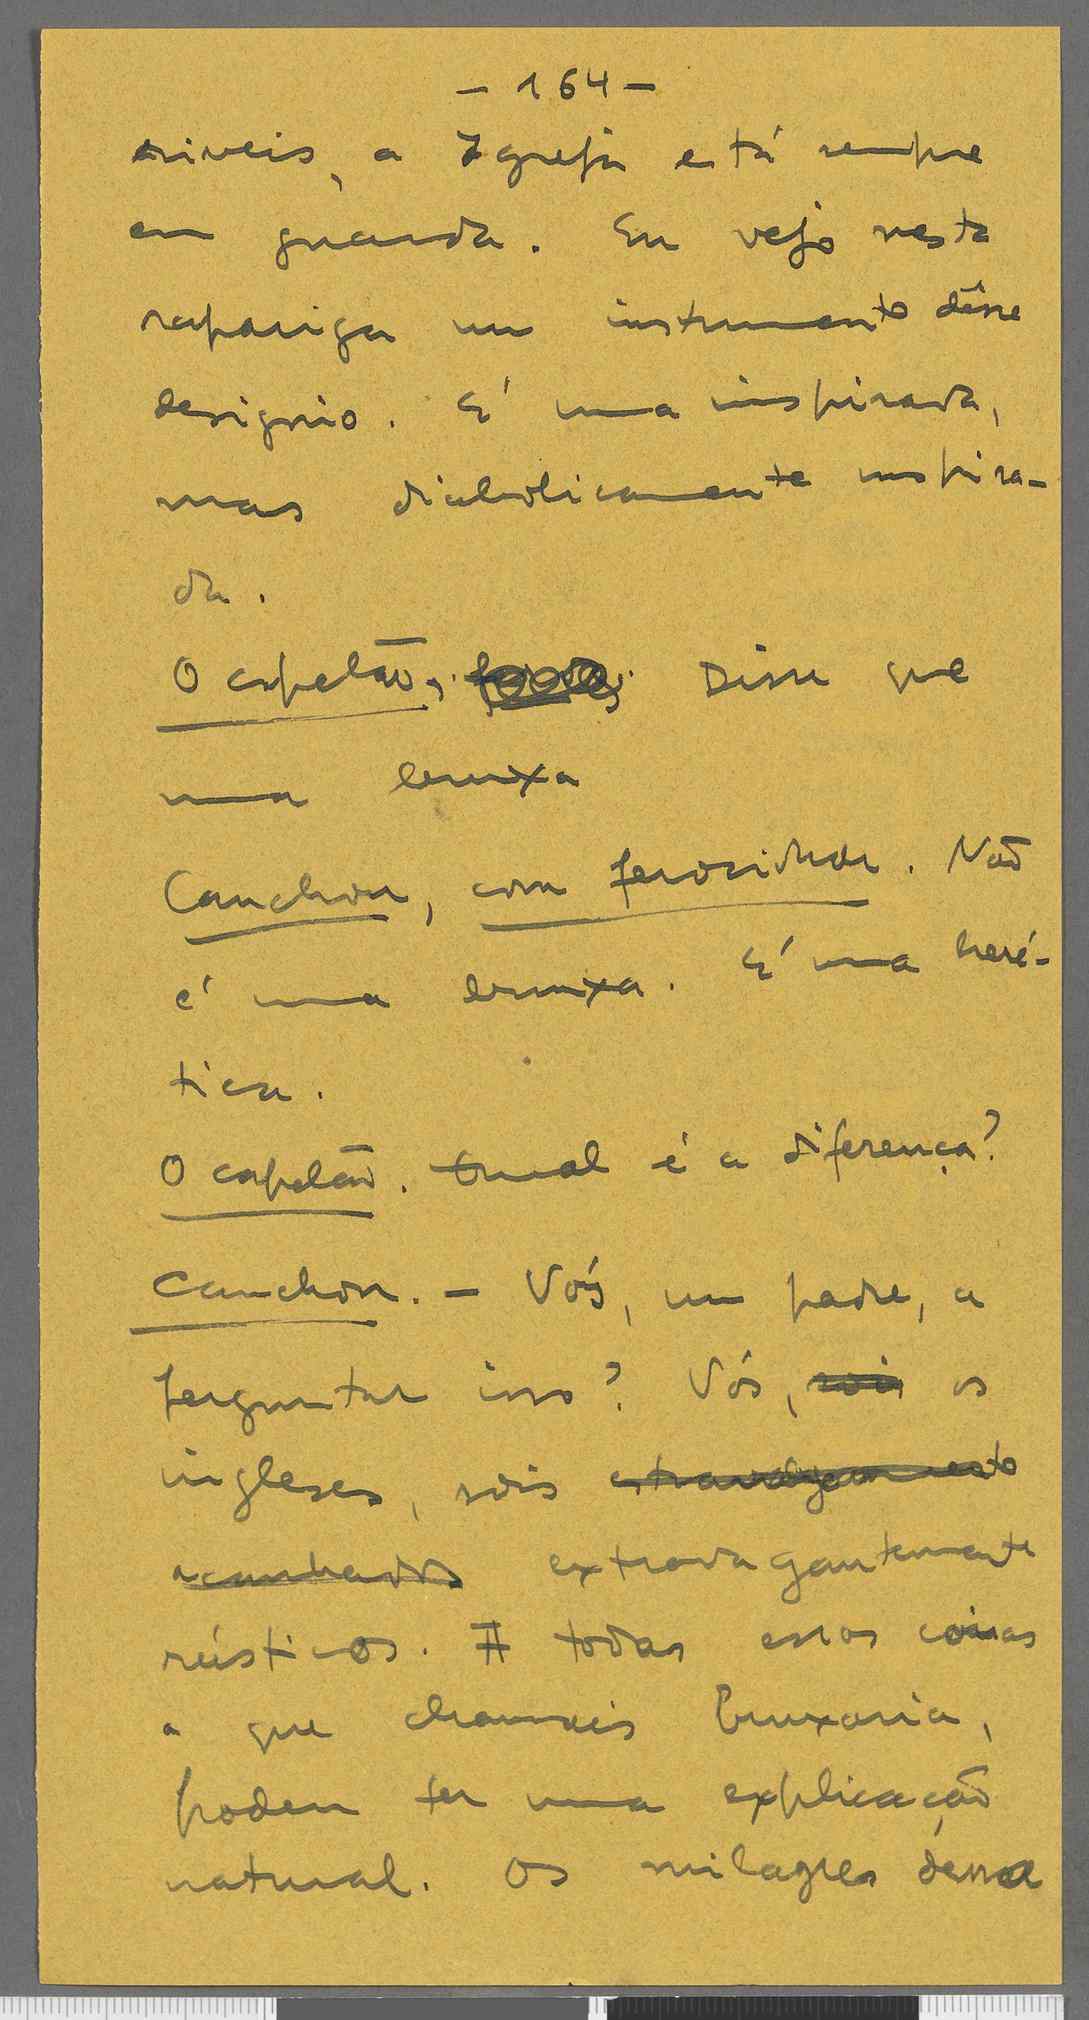 - 164 -
riveis, a Igreja está sempre
em guarda. Eu vejo nesta
rapariga um instrumento dêsse
designio. É uma inspirada,
mas diabolicamente inspira-
da.
O capelão. Disse que
uma bruxa
Cauchon, com ferocidade. Não
é uma bruxa. É uma heré-
tica.
O capelão. Qual é a diferença?
Cauchon. - Vós, um padre, a
perguntar isso? Vós, sois os
ingleses, sois
acanhados extravagantemente
rústicos. A todas essas coisas
a que chamais bruxaria,
podem ter uma explicação
natural. Os milagres dessa